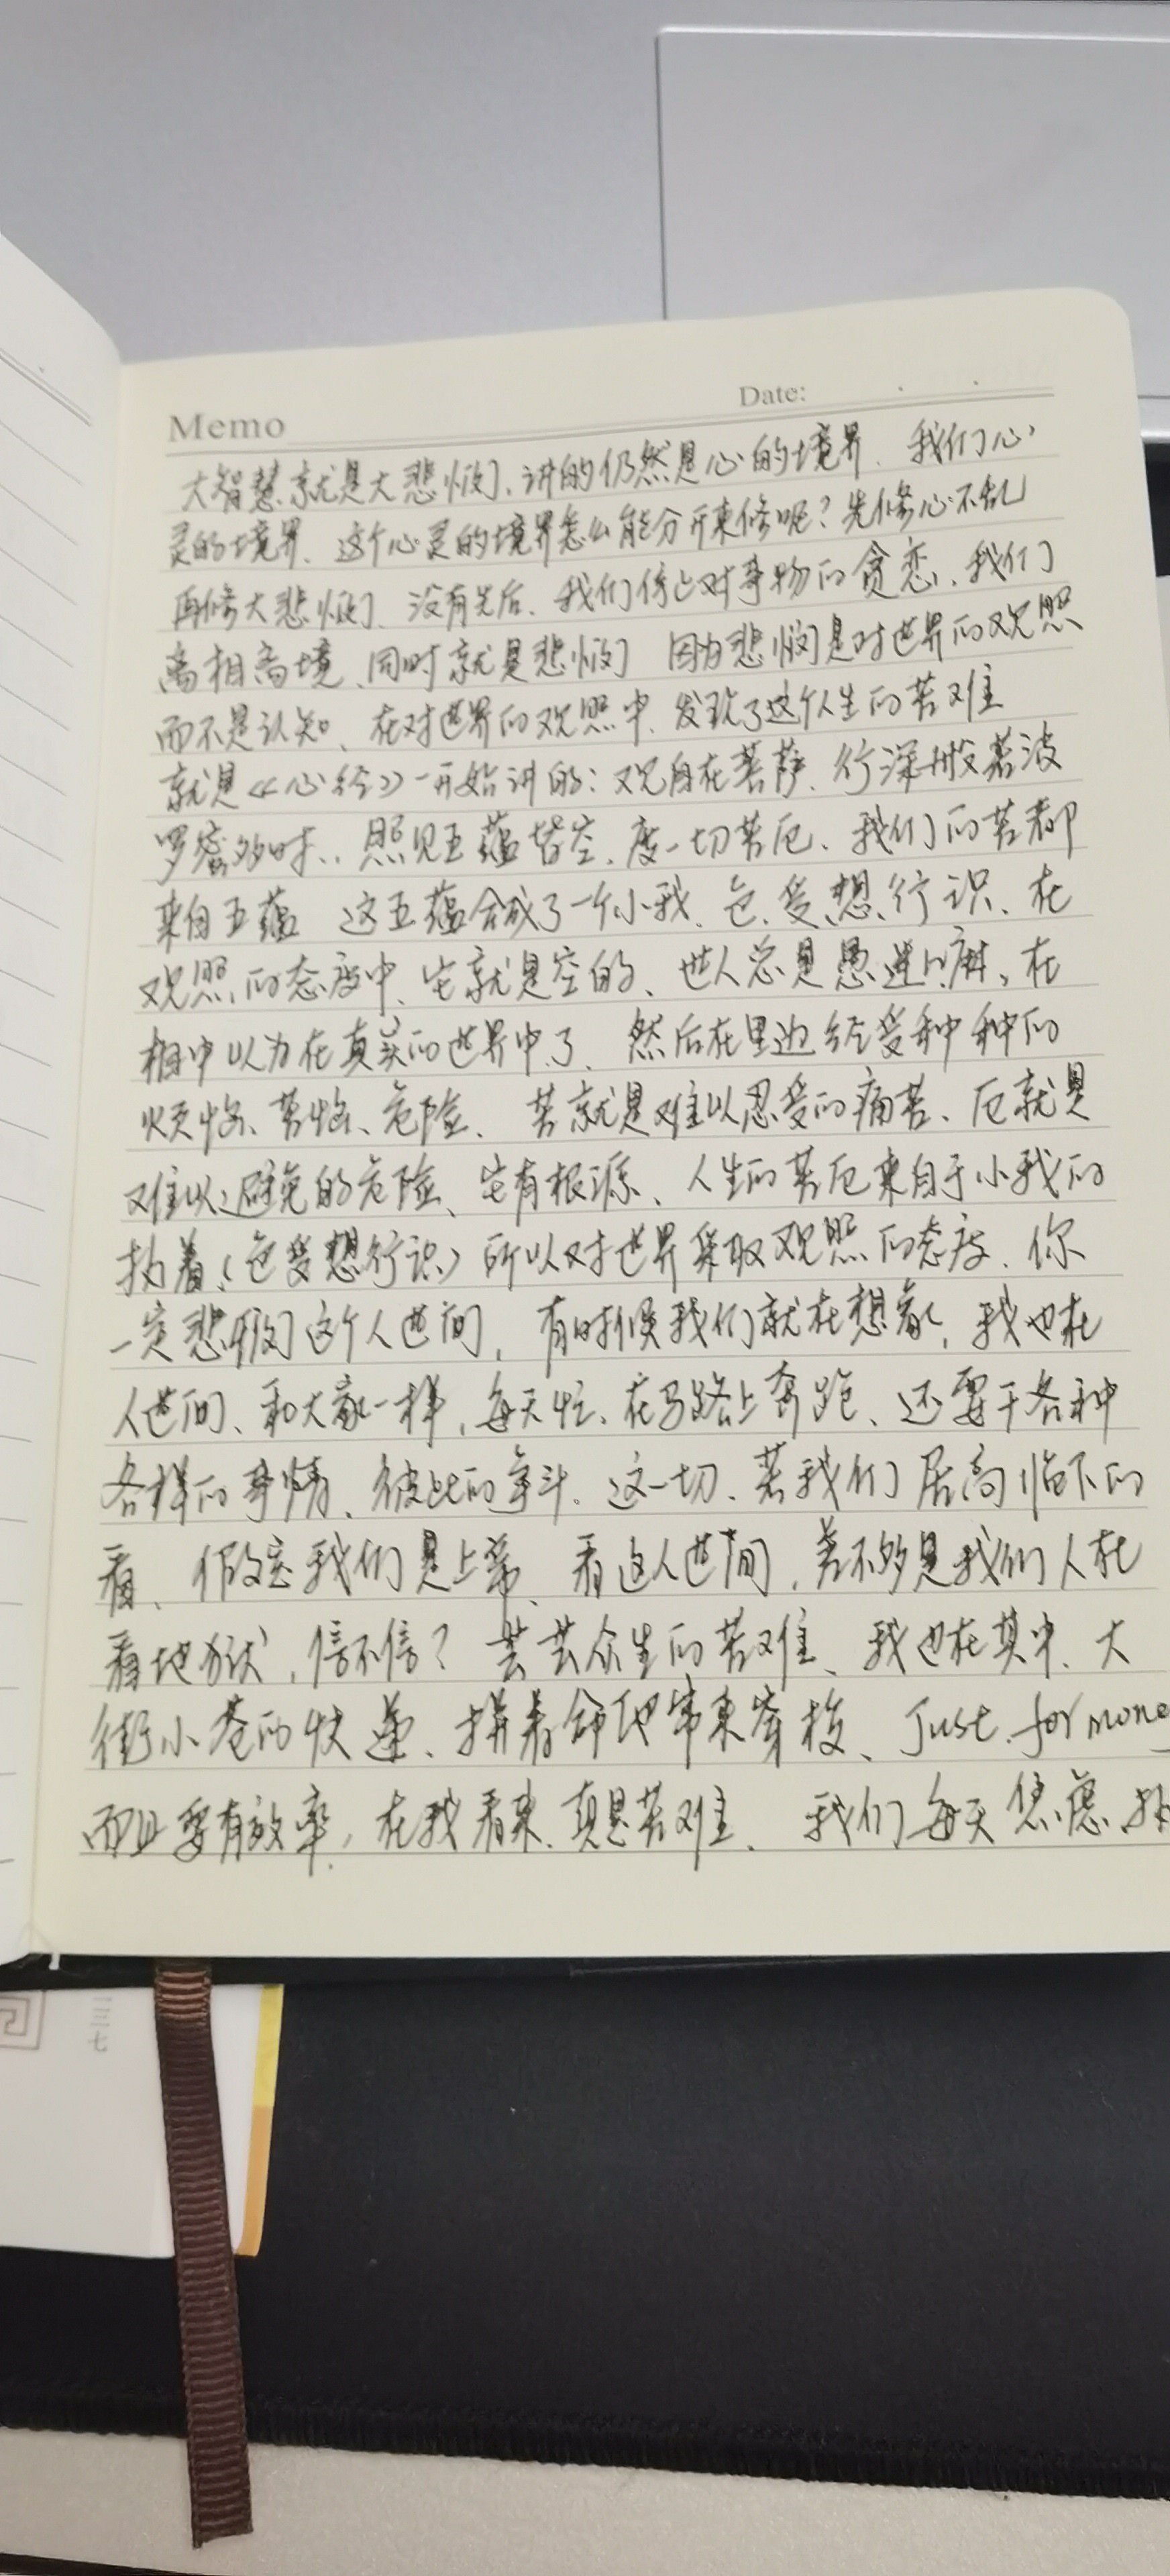 Date:
Memo
大智慧就是大悲悯、讲的仍然是心的境界、我们心
灵的境界、这个心灵的境界怎么能分开来修呢？先修心不乱
再修大悲悯、没有先后、我们停止对事物的贪恋、我们
离相离境、同时就是悲悯 因为悲悯是对世界的观照
而不是认知、在对世界的观照中、发现了这个人生的苦难
就是《心经》一开始讲的：观自在菩萨、行深般若波
罗蜜多时、照见五蕴皆空、度一切苦厄、我们的苦都
来自五蕴 这五蕴合成了一个小我、色、受、想、行、识、在
观照的态度中、它就是空的、世人总是愚迷、在
相中以为在真实的世界中了、然后在里边经受种种的
烦恼、苦恼、危险、苦就是难以忍受的痛苦、厄就是
难以避免的危险、它有根源、人生的苦厄来自于小我的
执着（色受想行识）所以对世界采取观照的态度、你
一定悲悯这个人世间，有时候我们就在想象，我也在
人世间、和大家一样，每天忙、在马路上奔跑、还要干各种
各样的事情、彼此的争斗。这一切、若我们居高临下的
看、假设我们是上帝、看这人世间，差不多是我们人在
看地狱，信不信？芸芸众生的苦难、我也在其中、大
街小巷的快递、拼着命地东穿梭、Just for money
而且要有效率，在我看来、真是苦难、我们每天
一三七